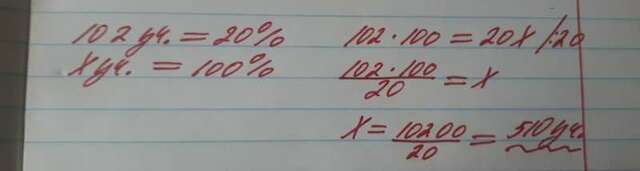 102 уч. = 20%
X уч. = 100%
102 · 100 = 20X /:20
102 · 100 / 20 = X
X = 10200 / 20 = 510 уч.